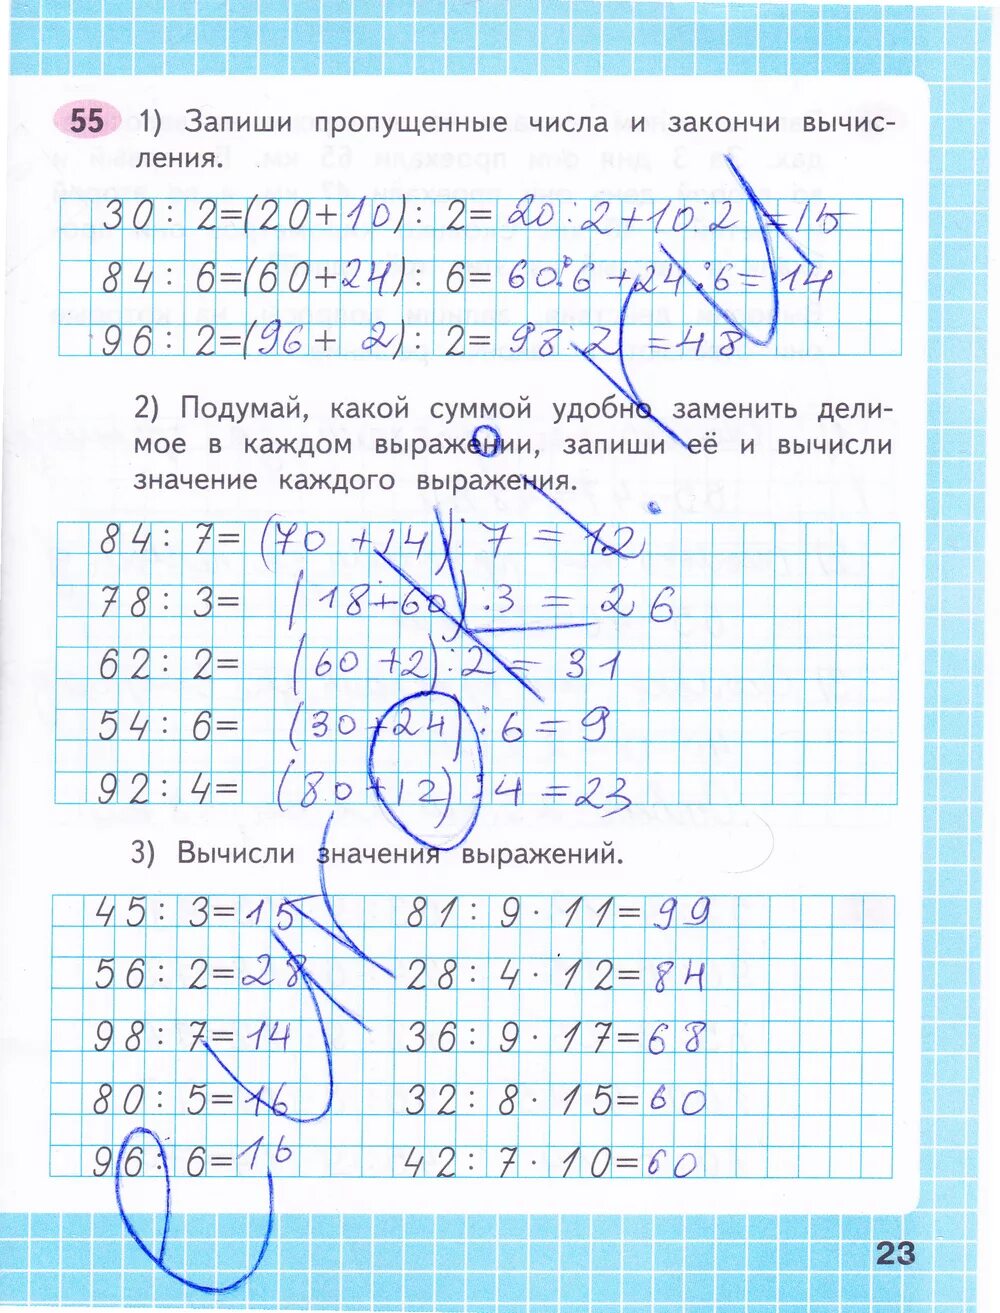 55 1) Запиши пропущенные числа и закончи вычис-
ления.
30 : 2=(20+10) : 2= 20:2+10:2=15
84 : 6=(60+24) : 6= 60:6+24:6=14
96 : 2=(96+ 2) : 2= 98:2 =48
2) Подумай, какой суммой удобно заменить дели-
мое в каждом выражении, запиши её и вычисли
значение каждого выражения.
84 : 7= (70 +14) : 7 = 12
78 : 3= (18+60) :3 = 26
62 : 2= (60 +2) :2 = 31
54 : 6= (30+24) : 6 = 9
92 : 4= (80+12) : 4 =23
3) Вычисли значения выражений.
45 : 3=15 81 : 9 · 11=99
56 : 2=28 28 : 4 · 12=84
98 : 7=14 36 : 9 · 17=68
80 : 5=16 32 : 8 · 15=60
96 : 6=16 42 : 7 · 10=60
23